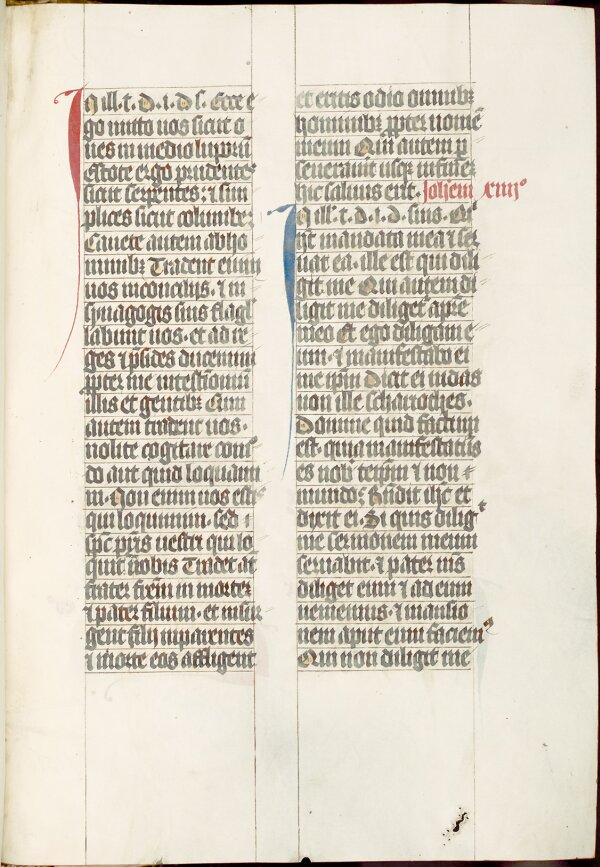 In ill. t. d. i. d. s. Ecce e
go mitto uos sicut o
ues in medio luporū
estote ergo prudentes
sicut serpentes: ⁊ sim
plices sicut columbe:
Cauete autem ab ho
minibꝫ Tradent enim
uos in concilijs. ⁊ in
synagogis suis flagel
labunt uos. et ad re
ges ⁊ p̄sides ducemini
ꝓpter me in testi͞oniū
illis et gentibꝫ Cum
autem tradent uos.
nolite cogitare quo͞
do aut quid loquami
ni. Non enim uos estis
qui loquimini. sed
sp̄c pr̄is uestri qui lo
quit͛ ī nobis Tradet at͛
frater frēm in mortē
⁊ pater filium. et insur
gent filij in parentes
⁊ morte eos affligent
et eritis odio omnibꝫ
hominibꝫ ꝓpter nomē
meum Qui autem ꝑ
seuerauit usqꝫ in finē
hic saluus erit. Johem xiiij°
In ill. t. d. i. d. suis. Qi
h͞t mandata mea ⁊ ser
uat ea. ille est qui dili
git me Qui autem di
ligit me diligetꝛ a pr̄e
meo Et ego diligam e
um. ⁊ manifestabo ei
me ip̄m Dicit ei iudas
non ille scharioth͛.
Domine quid factum
est. quia manifestatur͛
es nob̄ teip̄m ⁊ non
mundo: R̄ndit ih͞c et
dixit ei. Si quis dilig͛
me sermonem meum
seruabit. ⁊ pater m͞s
diliget eum ⁊ ad eum
ueniemus. ⁊ mansio
nem aput eum faciem͛
Qui non diligit me